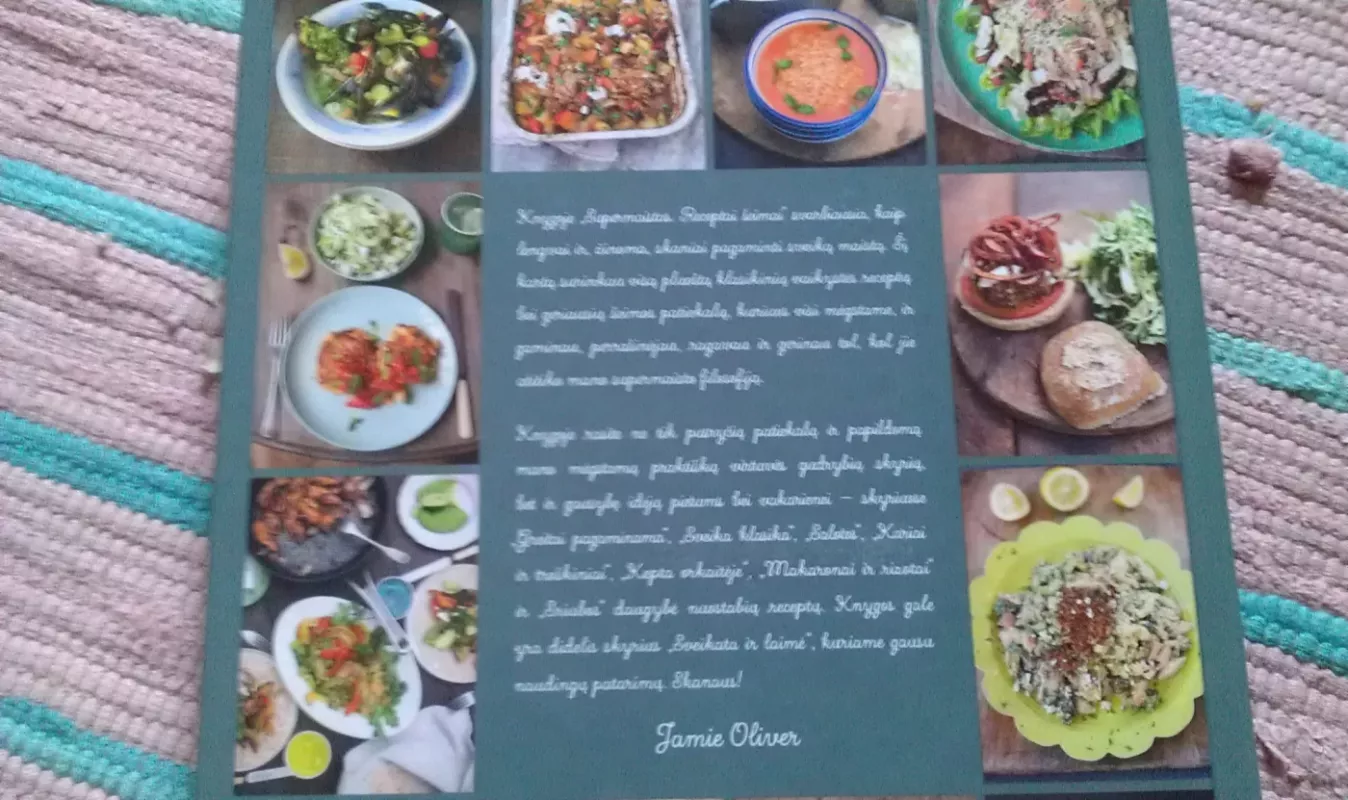 Knygoje „Supermaistas. Receptai šeimai“ svarbiausia, kaip
lengvai ir, žinoma, skaniai pagaminti sveiką maistą. Šį
kartą surinkau visą pluoštą klasikinių vaikystės receptų
bei geriausių šeimos patiekalų, kuriuos visi mėgstame, ir
gaminau, perrašinėjau, ragavau ir gerinau tol, kol jie
atitiko mano supermaisto filosofiją.
Knygoje rasite ne tik pusryčių patiekalų ir papildomą
mano mėgstamų praktiškų virtuvės gudrybių skyrių,
bet ir gausybę idėjų pietums bei vakarienei – skyriuose
„Greitai pagaminama“, „Sveika klasika“, „Salotos“, „Kariai
ir troškiniai“, „Kepta orkaitėje“, „Makaronai ir rizotai“
ir „Sriubos“ daugybė nuostabių receptų. Knygos gale
yra didelis skyrius „Sveikata ir laimė“, kuriame gausu
naudingų patarimų. Skanaus!
Jamie Oliver